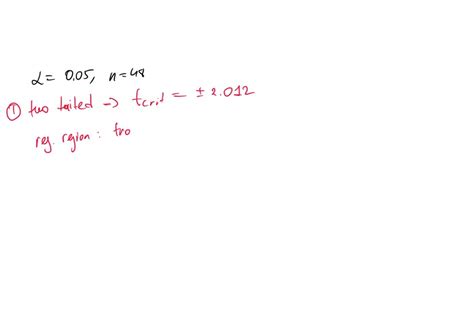 α = 0.05, n=48
① two tailed → tcrit = ± 2.012
rej. region : two